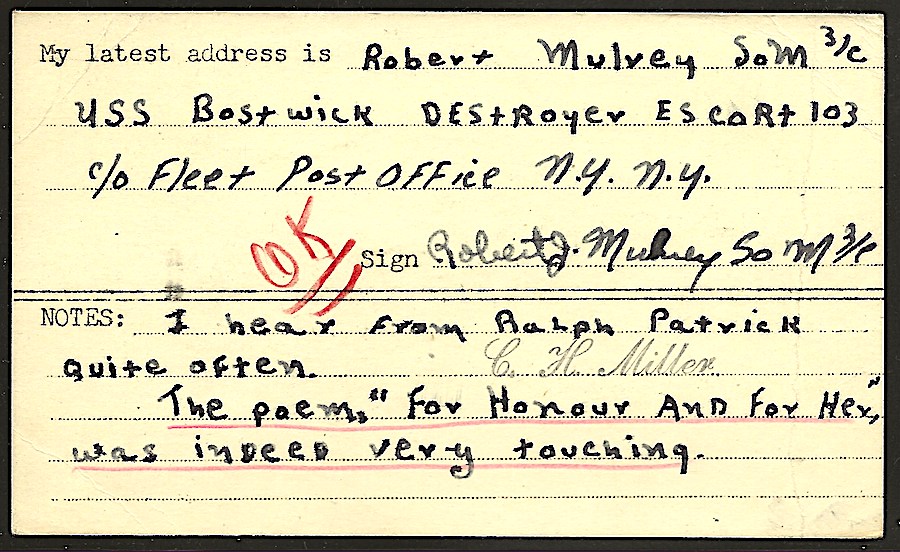 My latest address is Robert Mulvey SoM 3/c
USS Bostwick DEStRoyer EScoRt 103
c/o Fleet Post OFFice N.Y. N.Y.
OK
Sign Robert J. Mulvey SoM 3/c
NOTES: I hear from Ralph Patrick
quite often.
C. H. Miller
The poem, "For Honour AND For Her,"
was inDEED very touching.